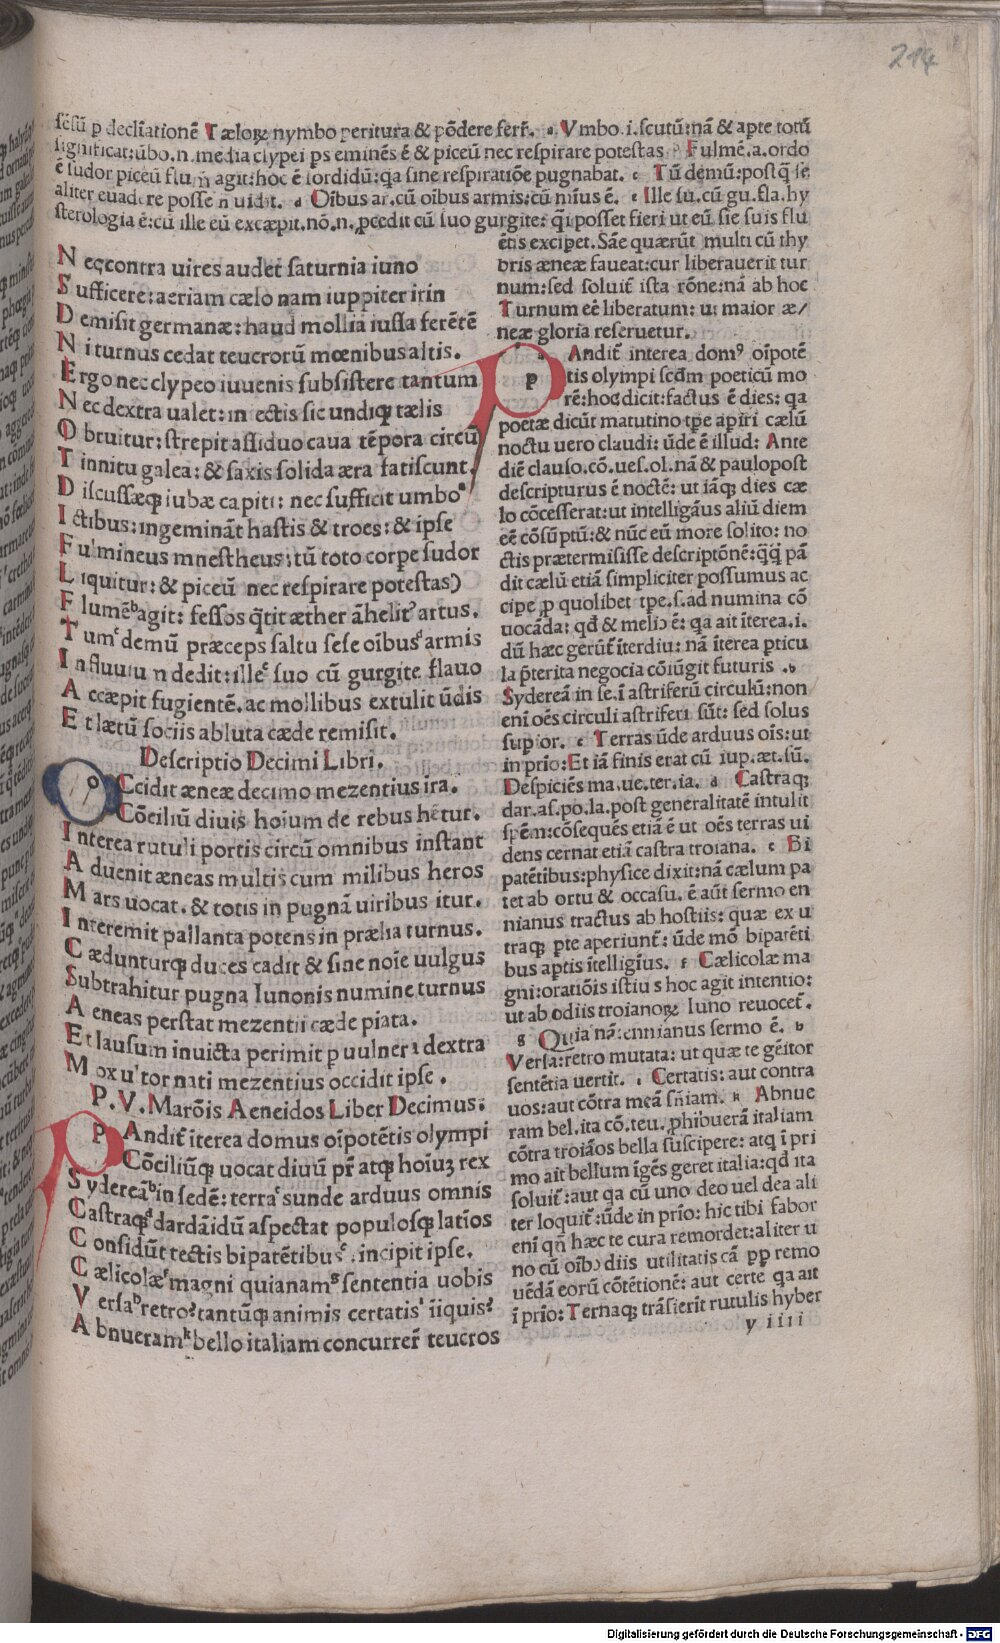 214
sēsū p decliatiōnē Tæloꝝ nymbo peritura & pōdere ferr̄. a Vmbo .i. scutū: nā & apte totū
significat: ūbo .n. media clypei ps eminēs ē & piceū nec respirare potestas Fulmē .a. ordo
ē sudor piceū flum̄ agit: hoc ē sordidū: qa sine respiratiōe pugnabat. c Tū demū: postq̄ se
aliter euadere posse n̄ uidit. d Oibus ar. cū oibus armis: cū mīus ē. e Ille su. cū gu. fla. hy
sterologia ē: cū ille eū excæpit. nō .n. pcedit cū suo gurgite: q̄i posset fieri ut eū sie suis flu
N ec contra uires audet saturnia iuno
S ufficere: aeriam cælo nam iuppiter irin
D emisit germanæ: haud mollia iussa ferētē
N i turnus cedat teucrorū mœnibus altis.
E rgo nec clypeo iuuenis subsistere tantum
N ec dextra ualet: in ectis sic undiqꝫ tælis
O bruitur: strepit assiduo caua tēpora circū
T innitu galea: & saxis solida æra fatiscunt.
D iscussæqꝫ iubæ capiti: nec sufficit umbo a
I ctibus: ingemināt hastis & troes: & ipse
F ulmineus mnestheus: tū toto corpe sudor
L iquitur: & piceū nec respirare potestas)
F lumē b agit: fessos q̄tit æther āhelit⁹ artus.
T um c demū præceps saltu sese oībus d armis
I n fluuiu n dedit: ille e suo cū gurgite flauo
A ccæpit fugientē. ac mollibus extulit ūdis
E t lætū sociis abluta cæde remisit.
Descriptio Decimi Libri.
o Ccidit æneæ decimo mezentius ira.
Cōciliū diuis hoium de rebus hētur.
I nterea rutuli portis circū omnibus instant
A duenit æneas multis cum milibus heros
M ars uocat. & totis in pugnā uiribus itur.
I nteremit pallanta potens in prælia turnus.
C ædunturqꝫ duces cadit & sine noie uulgus
S ubtrahitur pugna Iunonis numine turnus
A eneas perstat mezentii cæde piata.
E t lausum inuicta perimit p uulnera dextra
M ox ultor nati mezentius occidit ipse.
P. V. Marōis Aeneidos Liber Decimus:
p Andit̄ īterea domus oīpotētis olympi
Cōciliūqꝫ uocat diuū pr̄ atqꝫ hoiuꝫ rex
S ydereā b in sedē: terras c unde arduus omnis
C astraqꝫ d dardāidū aspectat populosqꝫ latīos
C onsidūt tectis bipatētibus e. incipit ipse.
C ælicolæ f magni quianam g sententia uobis
V ersa h retro? tantūqꝫ animis certatis i īiquis?
A bnueram k bello italiam concurrer̄ teucros
ētis excipet. Sāe quærūt multi cū thy
bris æneæ faueat: cur liberauerit tur
num: sed soluit̄ ista rōne: nā ab hoc
Turnum eē liberatum: ut maior æ/
neæ gloria reseruetur.
p a Andit̄ interea dom⁹ oīpotē
tis olympi scdm poeticū mo
rē: hoc dicit: factus ē dies: qa
poetæ dicūt matutino tpe apiri cælū
noctu uero claudi: ūde ē illud: Ante
diē clauso. cō. ues. ol. nā & paulopost
descripturus ē noctē: ut iāqꝫ dies cæ
lo cōcesserat: ut intelligāus aliū diem
eē cōsūptū: & nūc eū more solito: no
ctis prætermisisse descriptōnē: q̄q̄ pā
dit cælū etiā simpliciter possumus ac
cipe ꝓ quolibet tpe. s. ad numina cō
uocāda: qd̄ & meli⁹ ē: qa ait īterea. i.
dū hæc gerūt̄ īterdiu: nā īterea pticu
la p̄terita negocia cōiūgit futuris . b
Sydereā in se. ī astriferū circulū: non
eni oēs circuli astriferi sūt: sed solus
supior. c Terras ūde arduus ois: ut
in prio: Et iā finis erat cū iup. æt. sū.
Despiciēs ma. ue. ter. ia. d Castraqꝫ
dar. as. po. la. post generalitatē intulit
spēm: cōsequēs etiā ē ut oēs terras ui
dens cernat etiā castra troiana. e Bi
patētibus: physice dixit: nā cælum pa
tet ab ortu & occasu. ē aūt sermo en
nianus tractus ab hostiis: quæ ex u
traqꝫ pte aperiunt̄: ūde mō bipatēti
bus aptis ītelligīus. f Cælicolæ ma
gni: oratiōis istius hoc agit intentio:
ut ab odiis troianoꝝ Iuno reuocet̄.
g Quia nā: ennianus sermo ē. h
Versa: retro mutata: ut quæ te gēitor
sentētia uertit. i Certatis: aut contra
uos: aut cōtra meā sn̄iam. k Abnue
ram bel. ita cō. teu. phibuerā italiam
cōtra troiāos bella suscipere: atqꝫ ī pri
mo ait bellum īgēs geret italia: qd̄ ita
soluit̄: aut qa cū uno deo uel dea ali
ter loquit̄: ūde in prio: hic tibi fabor
eni qn̄ hæc te cura remordet: aliter u
no cū oībꝰ diis utilitatis cā ꝓp remo
uēdā eorū cōtētionē: aut certe qa ait
ī prio: Ternaqꝫ trāsierit rutulis hyber
y iiii
Digitalisierung gefördert durch die Deutsche Forschungsgemeinschaft - DFG